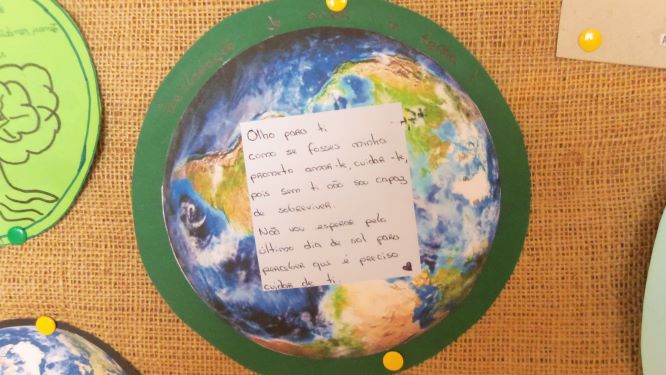 Declaração de amor à Terra
Olho para ti
como se fosses minha
prometo amar-te, cuidar-te,
pois sem ti não sou capaz
de sobreviver.
Não vou esperar pelo
último dia de sol para
perceber que é preciso
cuidar de ti